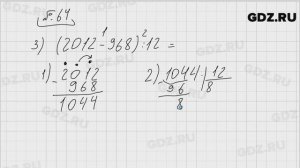 GDZ.RU
№.64
3) (2012-968):12=
1 2
1) 2012
- 968
1044
2) 1044 12
96 8
8